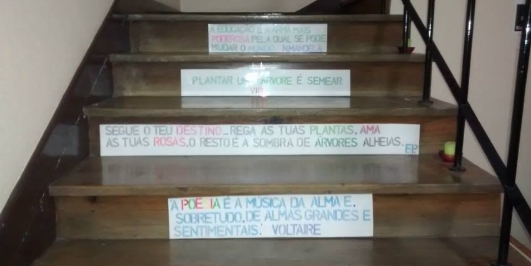 A EDUCAÇÃO É A ARMA MAIS
PODEROSA PELA QUAL SE PODE
MUDAR O MUNDO. N.MANDELA
PLANTAR UMA ÁRVORE É SEMEAR
SEGUE O TEU DESTINO... REGA AS TUAS PLANTAS, AMA
AS TUAS ROSAS. O RESTO É A SOMBRA DE ÁRVORES ALHEIAS.
FP
A POESIA É A MÚSICA DA ALMA E,
SOBRETUDO, DE ALMAS GRANDES E
SENTIMENTAIS. VOLTAIRE